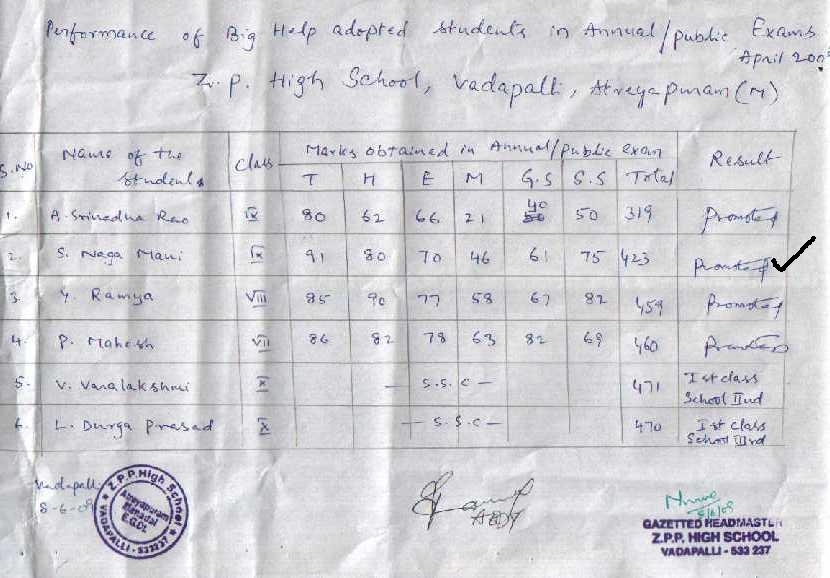 Performance of Big Help adopted students in Annual/public Exams
April 200
Z.P. High School, Vadapalli, Atreyapuram(M)
S.No Name of the Students Class Marks obtained in Annual/public exam Result
T H E M G.S S.S Total
1. A. Srinadha Rao IX 80 62 66 21 40 50 319 Promoted
2. S. Naga Mani IX 91 80 70 46 61 75 423 Promoted
3. Y. Ramya VIII 85 90 77 58 67 82 459 Promoted
4. P. Mahesh VII 86 82 78 63 82 69 460 Promoted
5. V. Varalakshmi X - S.S.C - 471 Ist class School IInd
6. L. Durga Prasad X - S.S.C - 470 Ist class School IIIrd
Vadapalli
8-6-09
Z.P.P. High School
Atreyapuram
Mandal
E.G.Dt.
VADAPALLI - 533237
8/6/09
GAZETTED HEADMASTER
Z.P.P. HIGH SCHOOL
VADAPALLI - 533 237